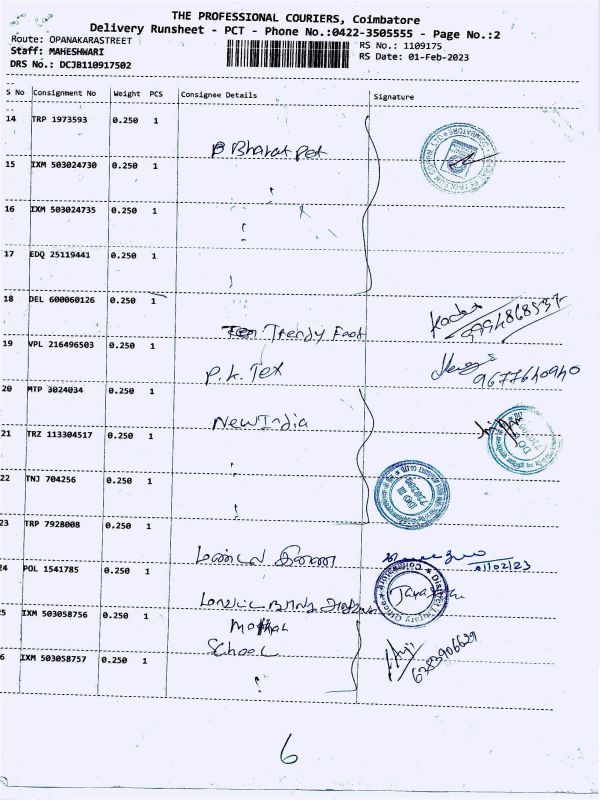 THE PROFESSIONAL COURIERS, Coimbatore
Delivery Runsheet - PCT - Phone No.:0422-3505555 - Page No.:2
Route: OPANAKARASTREET
RS No.: 1109175
Staff: MAHESHWARI
RS Date: 01-Feb-2023
DRS No.: DCJB110917502
S No Consignment No Weight PCS Consignee Details Signature
14 TRP 1973593 0.250 1
Bharat pet
15 IXM 503024730 0.250 1
16 IXM 503024735 0.250 1
17 EDQ 25119441 0.250 1
18 DEL 600060126 0.250 1
Trendy Foot
9994868537
19 VPL 216496503 0.250 1
P.K. Tex
9677640940
20 MTP 3024034 0.250 1
New India
21 TRZ 113304517 0.250 1
22 TNJ 704256 0.250 1
23 TRP 7928008 0.250 1
01/02/23
24 POL 1541785 0.250 1
District Library Office
Coimbatore
25 IXM 503058756 0.250 1
School
6383906629
26 IXM 503058757 0.250 1
6